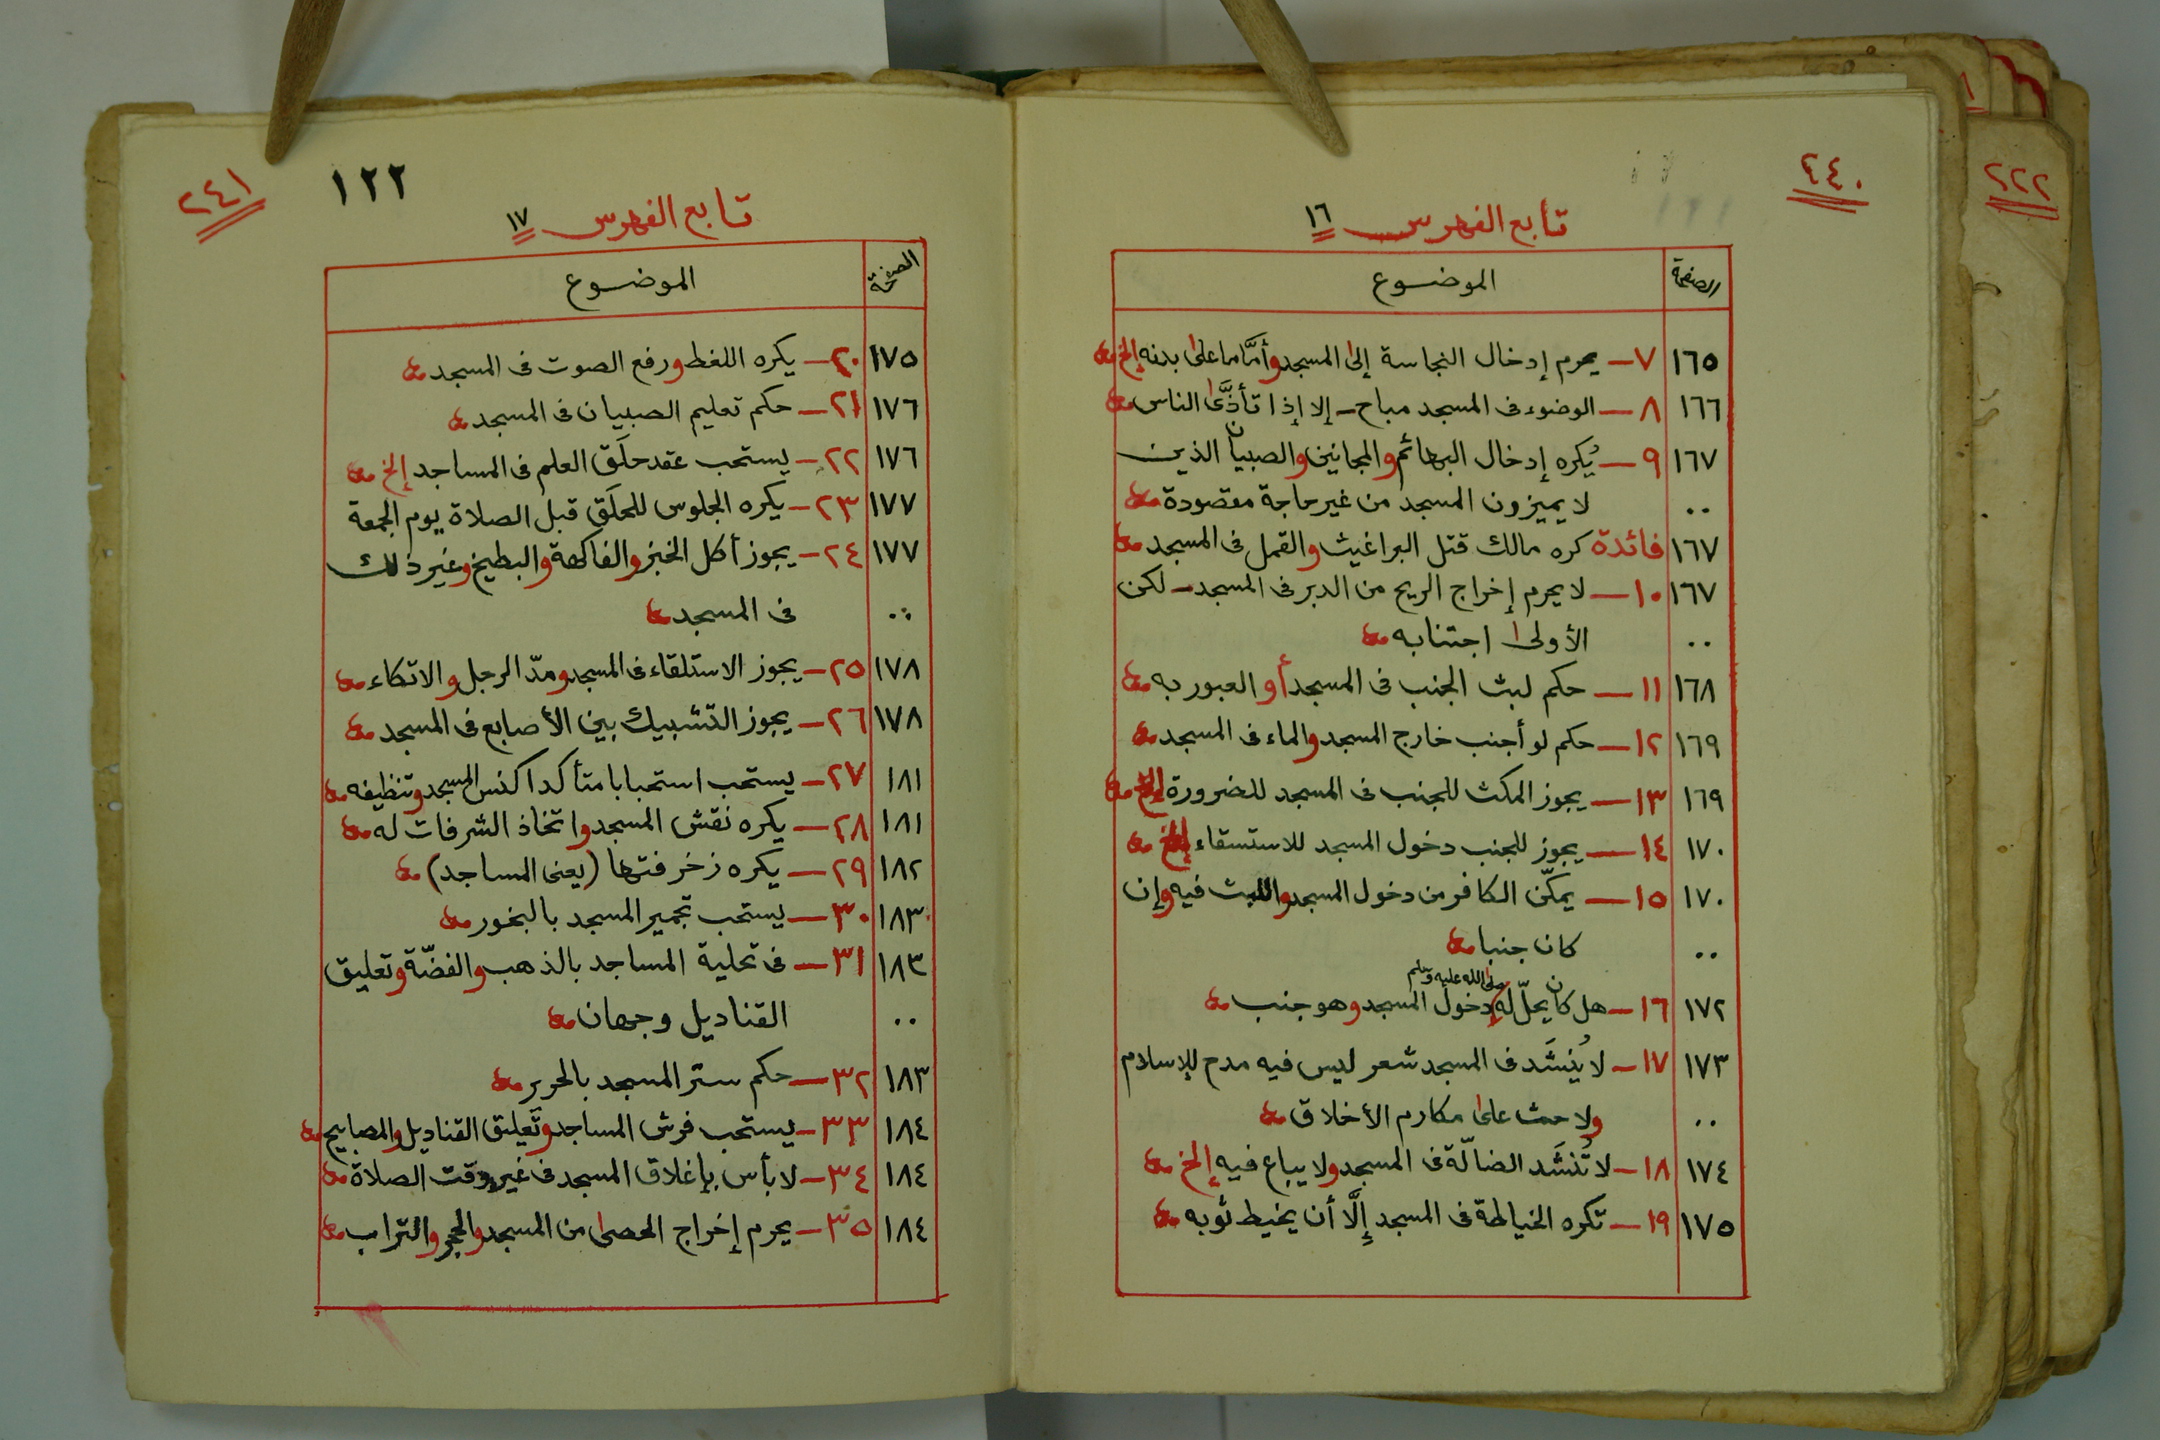 ٢٤٠
٢٢٢
تابع الفهرس ١٦
الصفحة الموضوع
١٦٥ ٧ - يحرم إدخال النجاسة إلى المسجد وأمّا ما على بدنه إلخ
١٦٦ ٨ - الوضوء فى المسجد مباح - إلا إذا تأذَّى الناس
١٦٧ ٩ - يُكره إدخال البهائم والمجانين والصبيان الذين
.. لا يميزون المسجد من غير حاجة مقصودة
١٦٧ فائدة كره مالك قتل البراغيث والقمل فى المسجد
١٦٧ ١٠ - لا يحرم إخراج الريح من الدبر فى المسجد - لكن
.. الأولى اجتنابه
١٦٨ ١١ - حكم لبث الجنب فى المسجد أو العبور به
١٦٩ ١٢ - حكم لو أجنب خارج المسجد والماء فى المسجد
١٦٩ ١٣ - يجوز المكث للجنب فى المسجد للضرورة إلخ
١٧٠ ١٤ - يجوز للجنب دخول المسجد للاستسقاء إلخ
١٧٠ ١٥ - يمكّن الكافر من دخول المسجد واللبث فيه وإن
.. كان جنبا
١٧٢ ١٦ - هل كان يحلّ له صلى الله عليه وسلم دخول المسجد وهو جنب
١٧٣ ١٧ - لا يُنشَد فى المسجد شعر ليس فيه مدح للإسلام
.. ولا حث على مكارم الأخلاق
١٧٤ ١٨ - لا تُنشَد الضالّة فى المسجد ولا يباع فيه إلخ
١٧٥ ١٩ - تكره الخياطة فى المسجد إلَّا أن يخيط ثوبه
٢٤١
١٢٢
تابع الفهرس ١٧
الصفحة الموضوع
١٧٥ ٢٠ - يكره اللغط ورفع الصوت فى المسجد
١٧٦ ٢١ - حكم تعليم الصبيان فى المسجد
١٧٦ ٢٢ - يستحب عقد حلَق العلم فى المساجد إلخ
١٧٧ ٢٣ - يكره الجلوس للحلَق قبل الصلاة يوم الجمعة
١٧٧ ٢٤ - يجوز أكل الخبز والفاكهة والبطيخ وغير ذلك
.. فى المسجد
١٧٨ ٢٥ - يجوز الاستلقاء فى المسجد ومدّ الرجل والاتكاء
١٧٨ ٢٦ - يجوز التشبيك بين الأصابع فى المسجد
١٨١ ٢٧ - يستحب استحبابا متأكدا كنس المسجد وتنظيفه
١٨١ ٢٨ - يكره نقش المسجد واتخاذ الشرفات له
١٨٢ ٢٩ - يكره زخرفتها (يعنى المساجد)
١٨٣ ٣٠ - يستحب تجمير المسجد بالبخور
١٨٣ ٣١ - فى تحلية المساجد بالذهب والفضّة وتعليق
.. القناديل وجهان
١٨٣ ٣٢ - حكم ستر المسجد بالحرير
١٨٤ ٣٣ - يستحب فرش المساجد وتَعليق القناديل والمصابيح
١٨٤ ٣٤ - لا بأس بإغلاق المسجد فى غير وقت الصلاة
١٨٤ ٣٥ - يحرم إخراج الحصى من المسجد والحجر والتراب